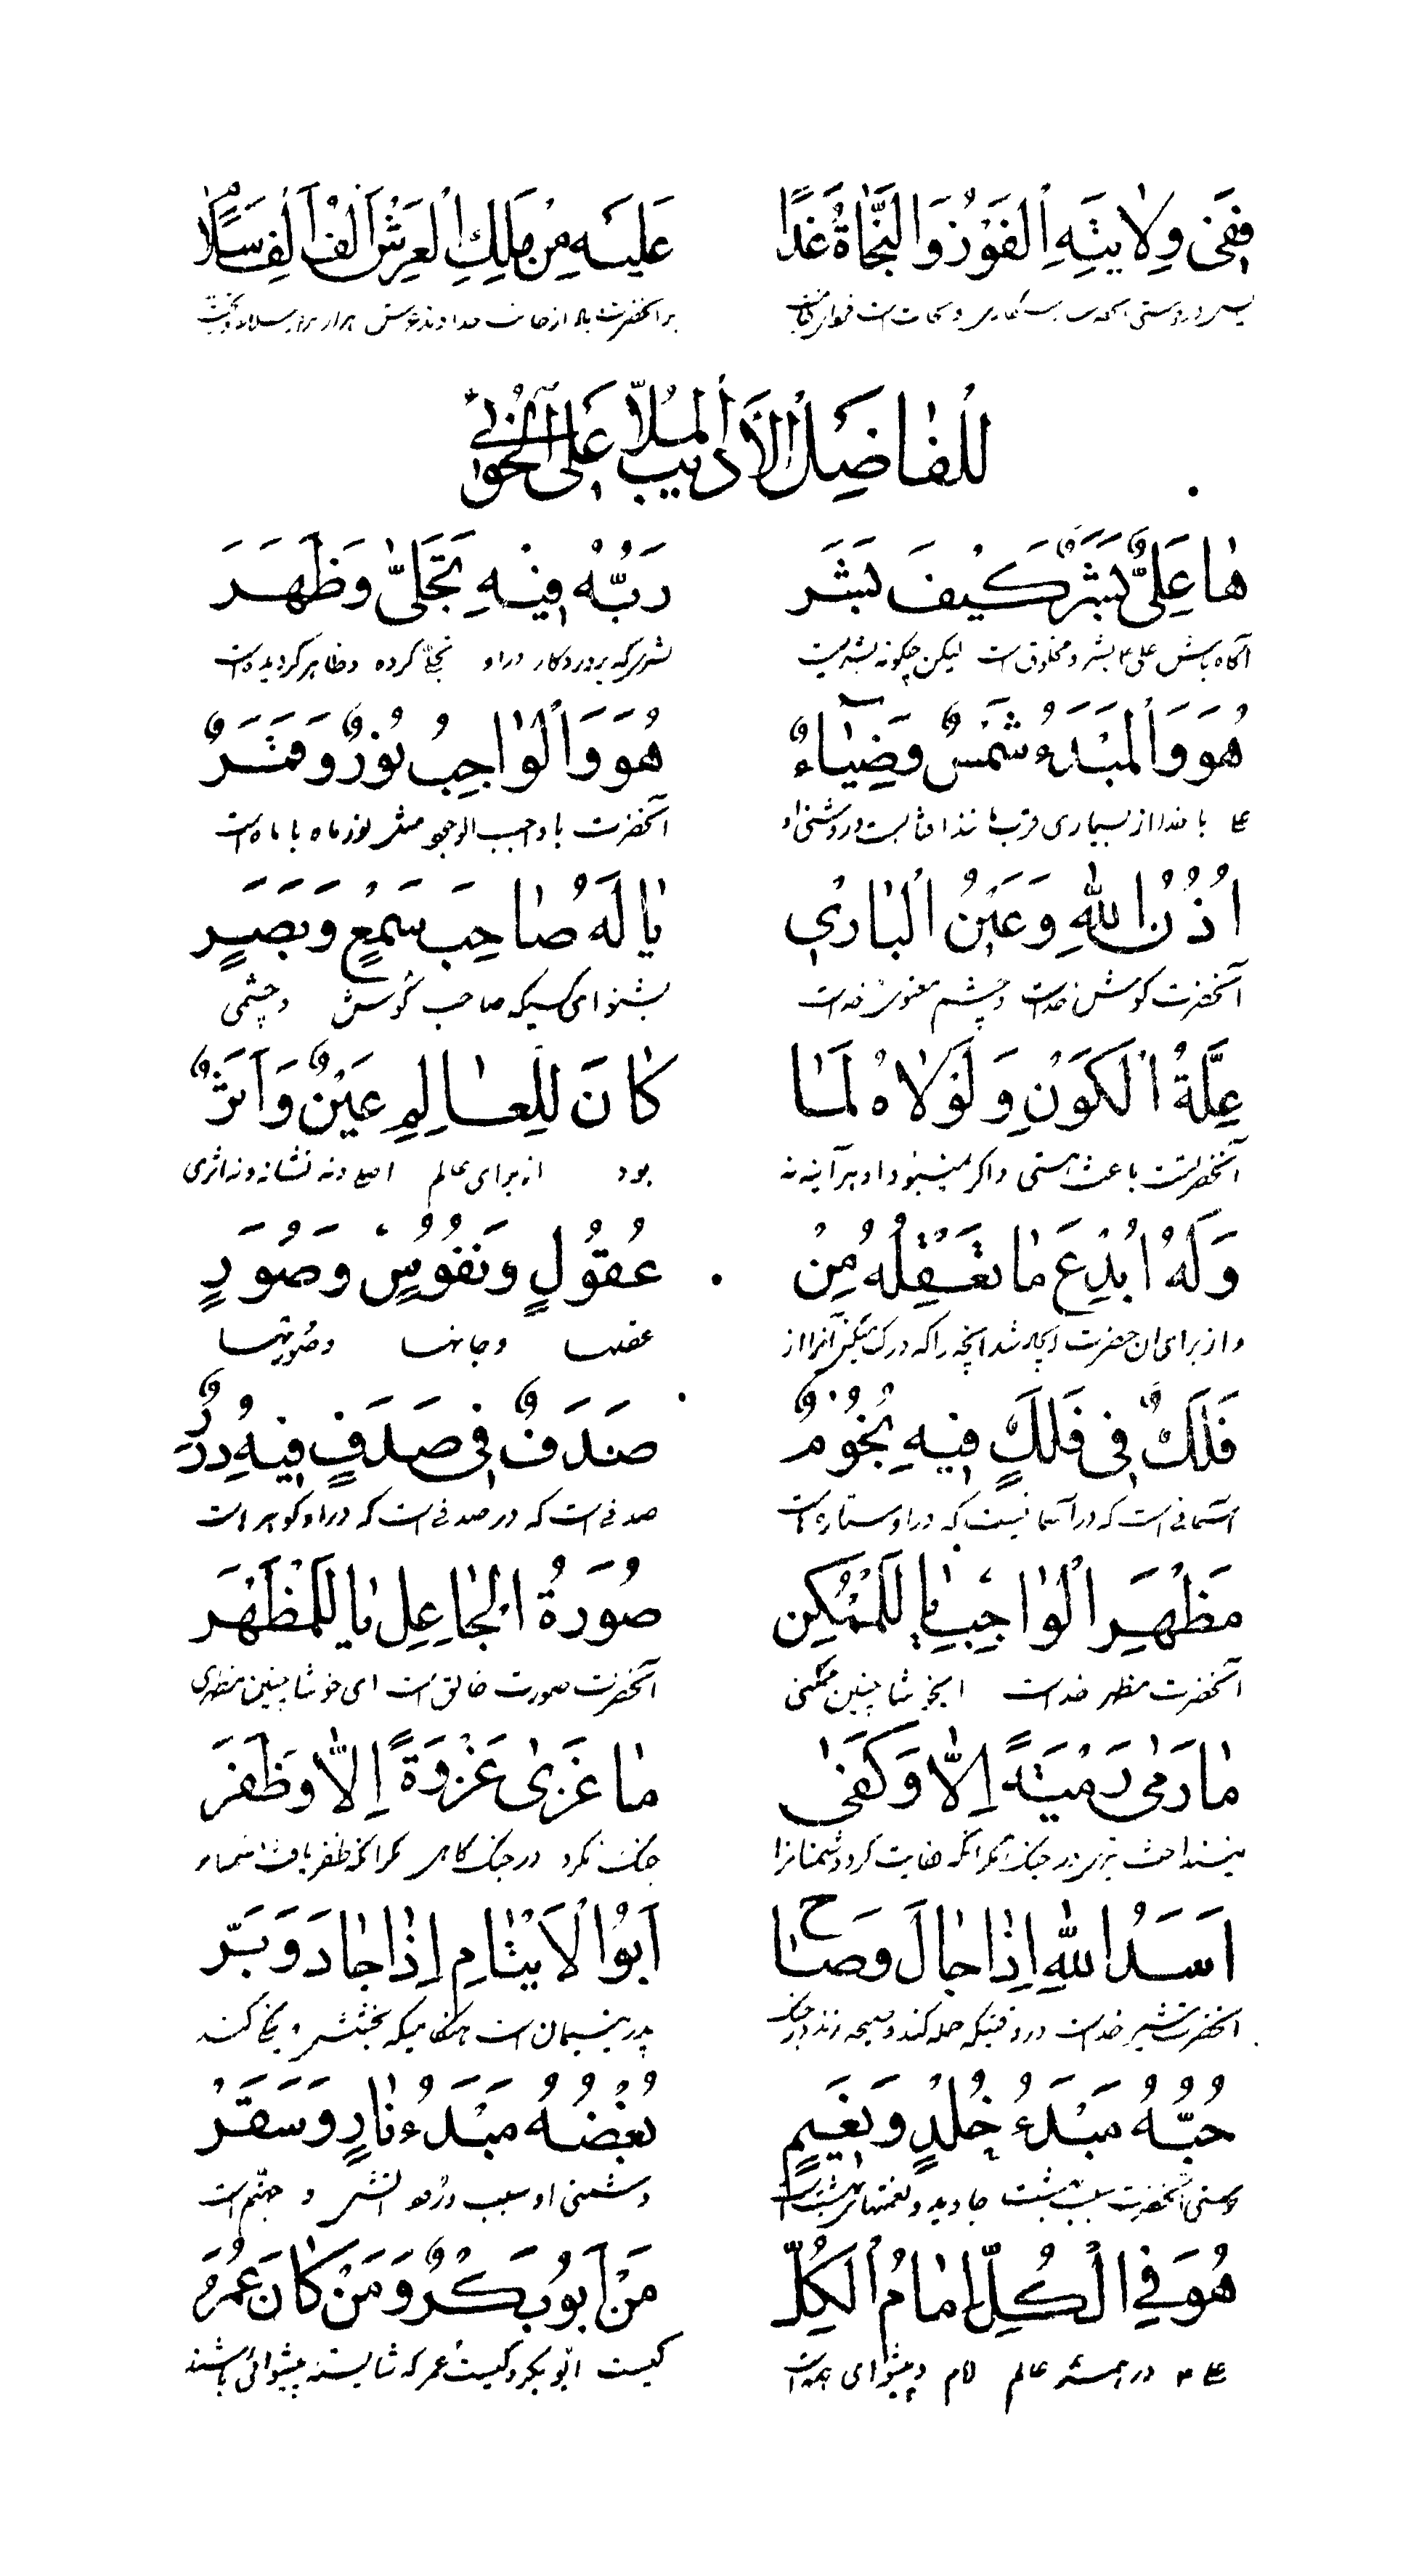 فَفِي وِلَايَتِهِ الْفَوْزُ وَالنَّجَاةُ غَدًا عَلَيْهِ مِنْ مَلِكِ الْعَرْشِ أَلْفُ أَلْفِ سَلَامٍ
لِلْفَاضِلِ الْأَدِيبِ الْمُلَّا عَلِيّ الْخُوئِي
هَا عَلِيٌّ بَشَرٌ كَيْفَ بَشَر رَبُّهُ فِيهِ تَجَلَّى وَظَهَرَ
آگاه باش علی بشر و مخلوق است لیکن چگونه بشریست بشری که پروردگار در او تجلی کرده و ظاهر گردیده است
هُوَ وَالْمَبْدَءُ شَمْسٌ وَضِيَاءٌ هُوَ وَالْوَاجِبُ نُورٌ وَقَمَرٌ
با خدا از بسیاری قرب مانند آفتابست و روشنی او آنحضرت با واجب الوجود مثل نور ماه با ماه است
أُذُنُ اللهِ وَعَيْنُ الْبَارِي يَا لَهُ صَاحِبَ سَمْعٍ وَبَصَرٍ
آنحضرت گوش خداست و چشم معنوی خداست بشنو ای کسیکه صاحب گوش و چشمی
عِلَّةُ الْكَوْنِ وَلَوْلَاهُ لَمَا كَانَ لِلْعَالَمِ عَيْنٌ وَأَثَرٌ
آنحضرتست باعث هستی و اگر نمیبود او هر آینه نه بود از برای عالم اصل و نه نشانه و نه اثری
وَلَهُ أُبْدِعَ مَا تَعْقِلُهُ مِنْ عُقُولٍ وَنُفُوسٍ وَصُوَرٍ
و از برای آن حضرت ایجاد شد آنچه را که درک میکنی آنرا از عقلها و جانها و صورتها
فَلَكٌ فِي فَلَكٍ فِيهِ نُجُومٌ صَدَفٌ فِي صَدَفٍ فِيهِ دُرَرٌ
آسمانی است که در آسمانیست که در او ستاره هاست صدفی است که در صدفی است که در او گوهرهاست
مَظْهَرُ الْوَاجِبِ يَا لَلْمُمْكِنِ صُورَةُ الْجَاعِلِ يَا لَلْمَظْهَرِ
آنحضرت مظهر خداست ایخوشا چنین ممکنی آنحضرت صورت خالق است ای خوشا چنین مظهری
مَا رَمَى رَمْيَةً إِلَّا وَكَفَى مَا غَزَى غَزْوَةً إِلَّا وَظَفَرَ
جنگ نکرد در جنگ گاهی مگر آنکه ظفر یافت
أَسَدُ اللهِ إِذَا جَالَ وَصَاحَ أَبُو الْأَيْتَامِ إِذَا جَادَ وَبَرَّ
آنحضرت شیر خداست در وقتیکه حمله کند و صیحه زند در جنگ پدر یتیمان است هنگامیکه بخشش و نیکی کند
حُبُّهُ مَبْدَءُ خُلْدٍ وَنَعِيمٍ بُغْضُهُ مَبْدَءُ نَارٍ وَسَقَرْ
دوستی آنحضرت سبب بهشت جاوید و نعمتهای بهشت است دشمنی او سبب ورود آتش و جهنم است
هُوَ فِي الْكُلِّ إِمَامُ الْكُلِّ مَنْ أَبُوبَكْرٌ وَمَنْ كَانَ عُمَرُ
در همه عالم امام و پیشوای همه است کیست ابوبکر و کیست عمر که شایسته پیشوائی باشند